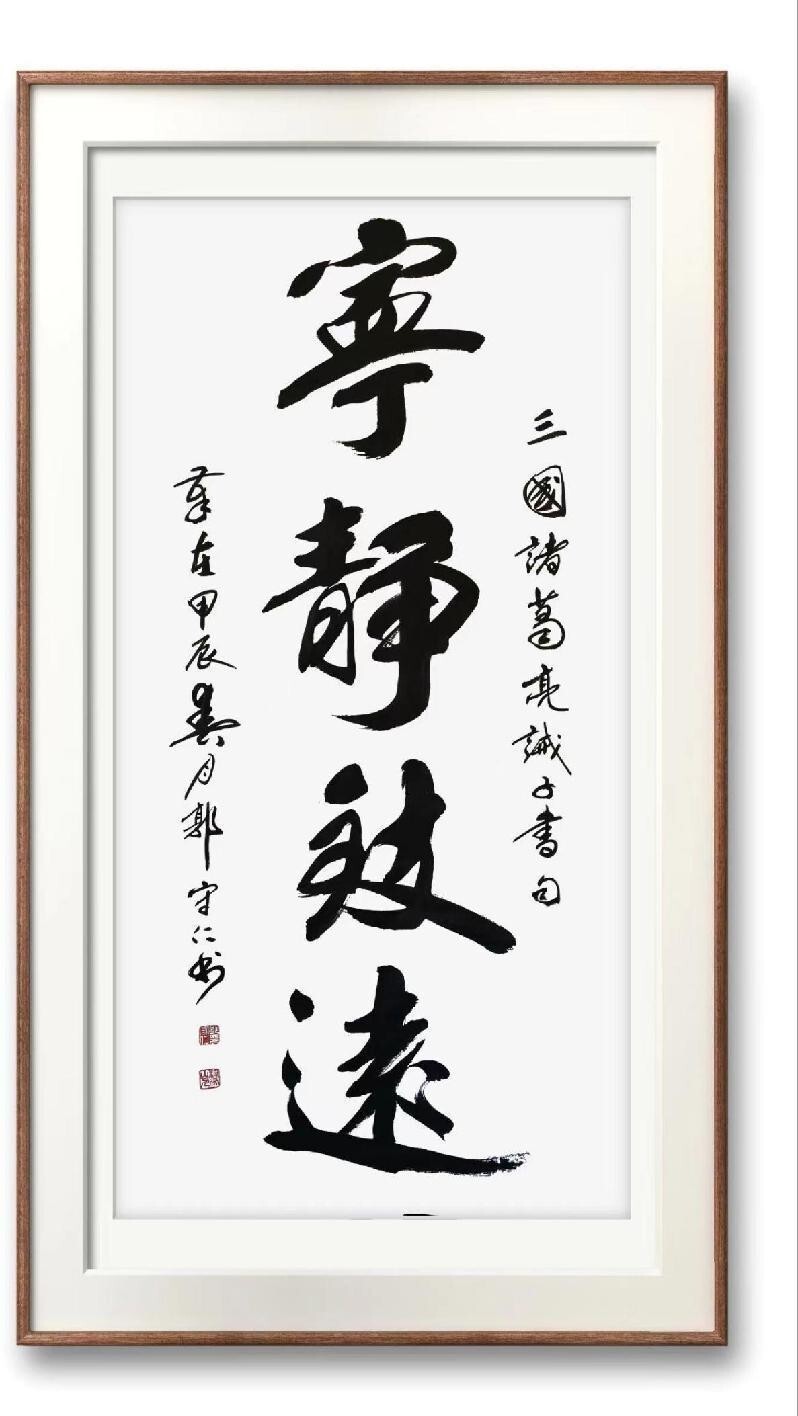 三國諸葛亮誡子書句
寧靜致遠
歲在甲辰月郭守仁書